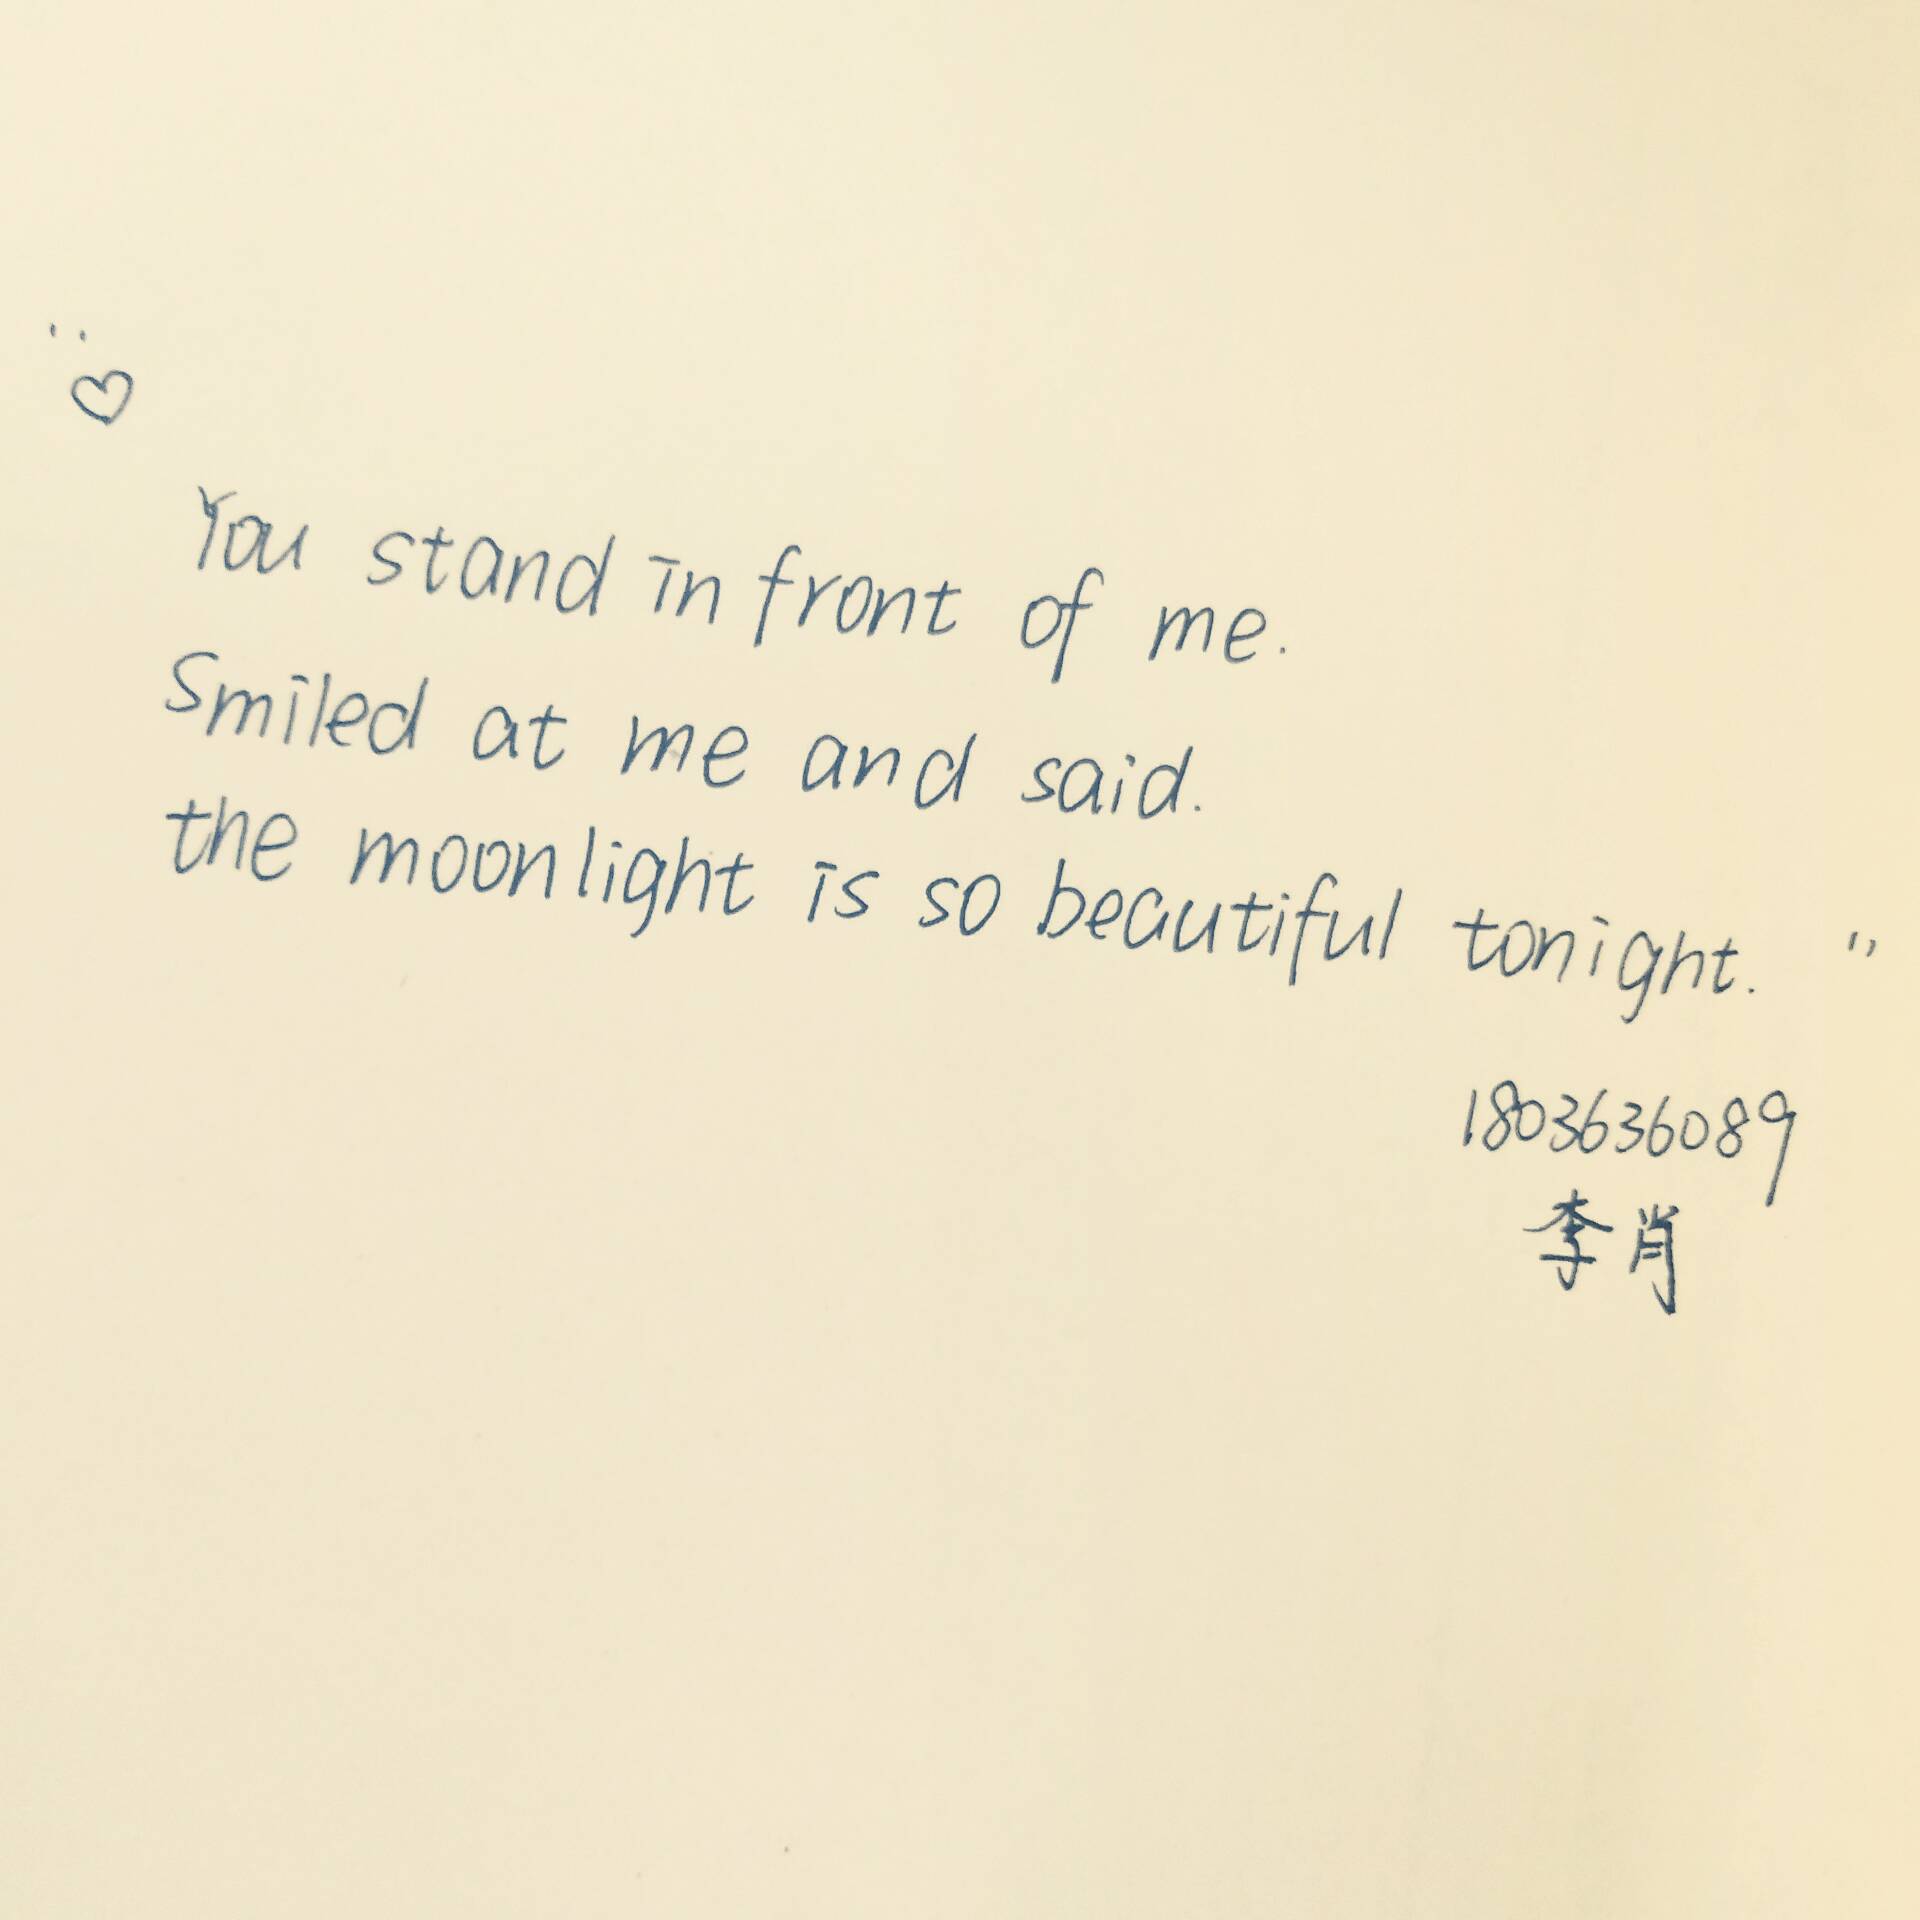 "
♡
You stand in front of me.
Smiled at me and said.
the moonlight is so beautiful tonight. "
1803636089
李肖